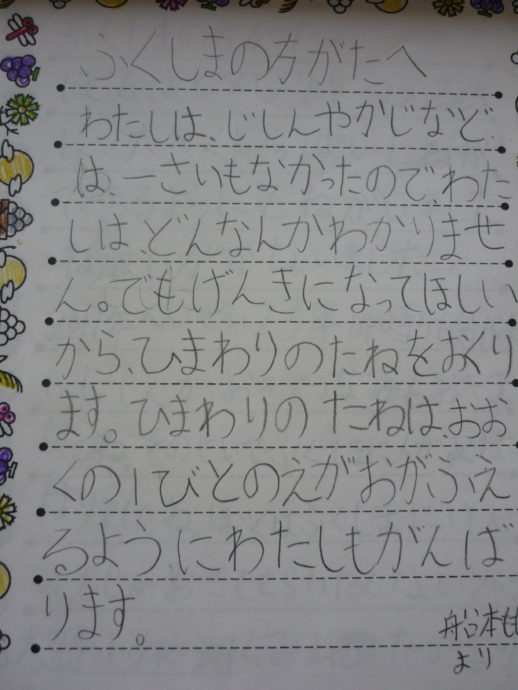 ふくしまの方がたへ
わたしは、じしんやかじなど
は、一さいもなかったので、わた
しは、どんなんかわかりませ
ん。でもげんきになってほしい
から、ひまわりのたねをおくり
ます。ひまわりのたねは、おお
くの1びとのえがおがふえ
るように、わたしもがんば
ります。
船本
より